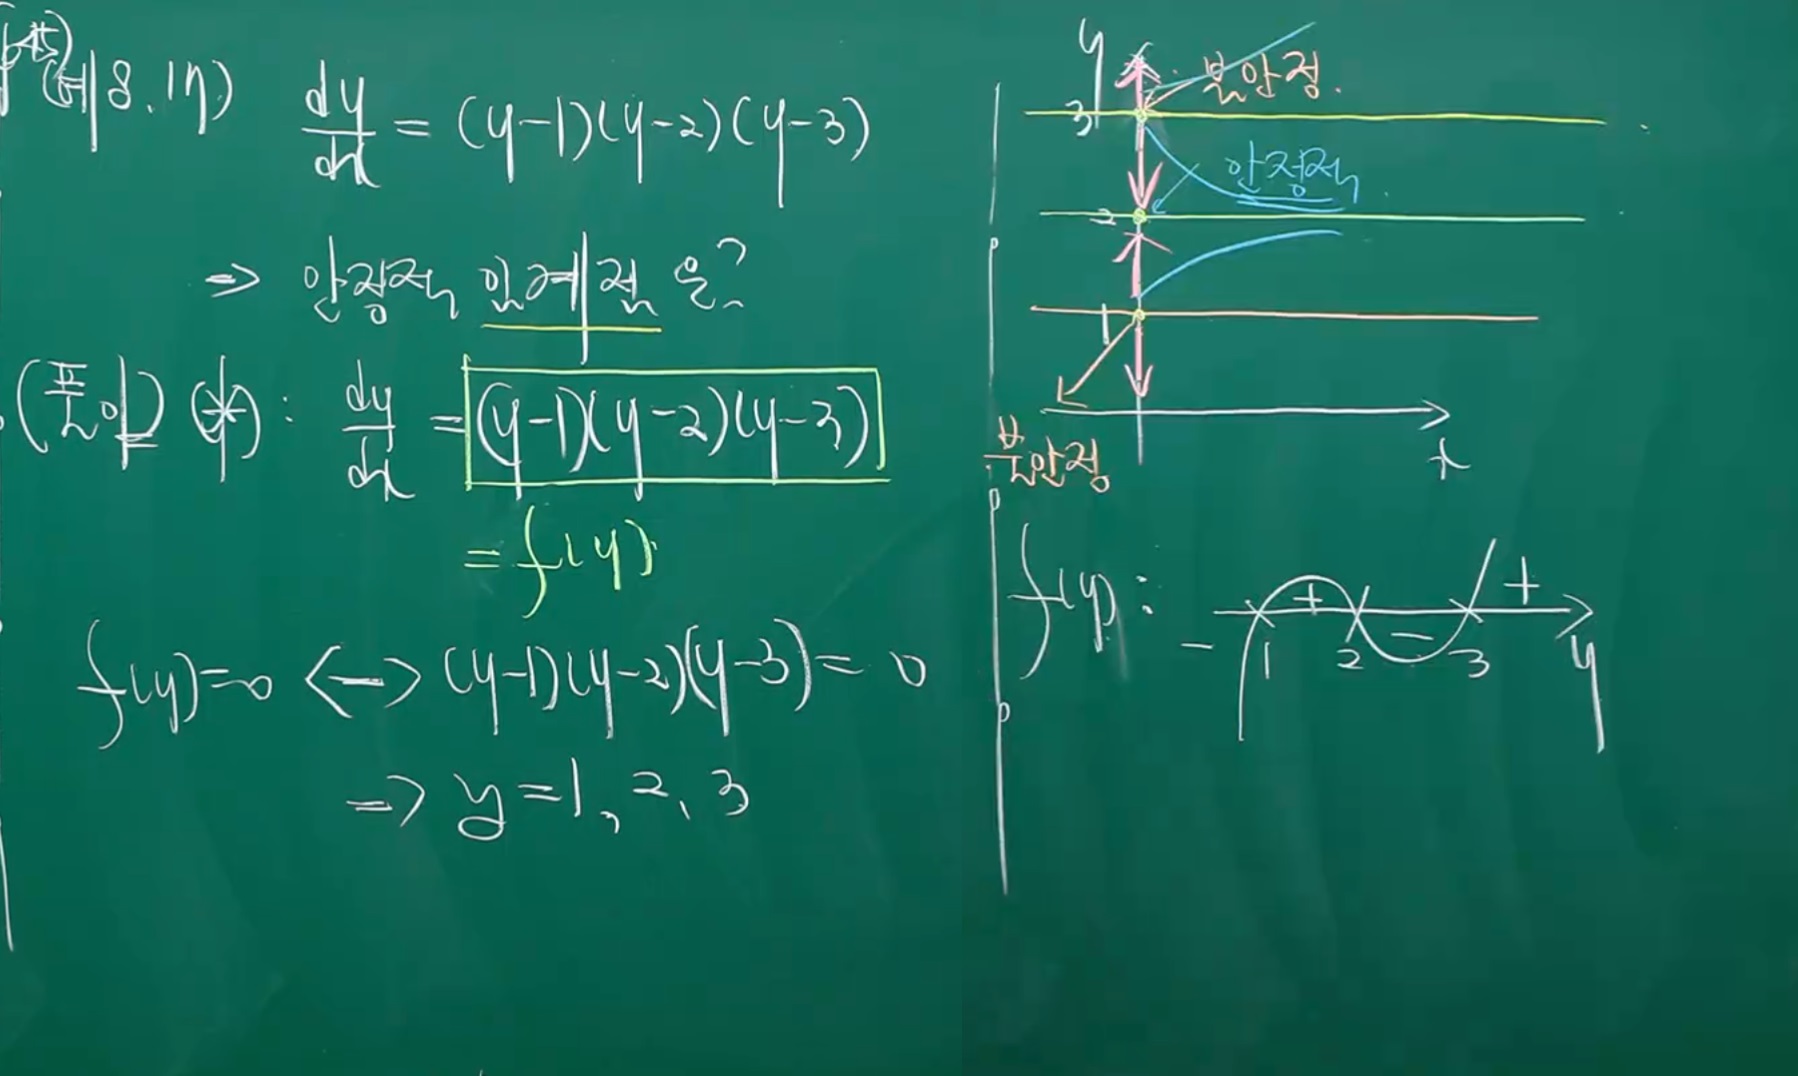 (예 8.17) dy/dx = (y-1)(y-2)(y-3)
⇒ 안정적 임계점은?
(풀이) (*): dy/dx = (y-1)(y-2)(y-3)
= f(y)
f(y)=0 ↔ (y-1)(y-2)(y-3) = 0
⇒ y=1, 2, 3
y
불안정
3
안정적
2
1
x
불안정
f(y): - + - +
1 2 3 y